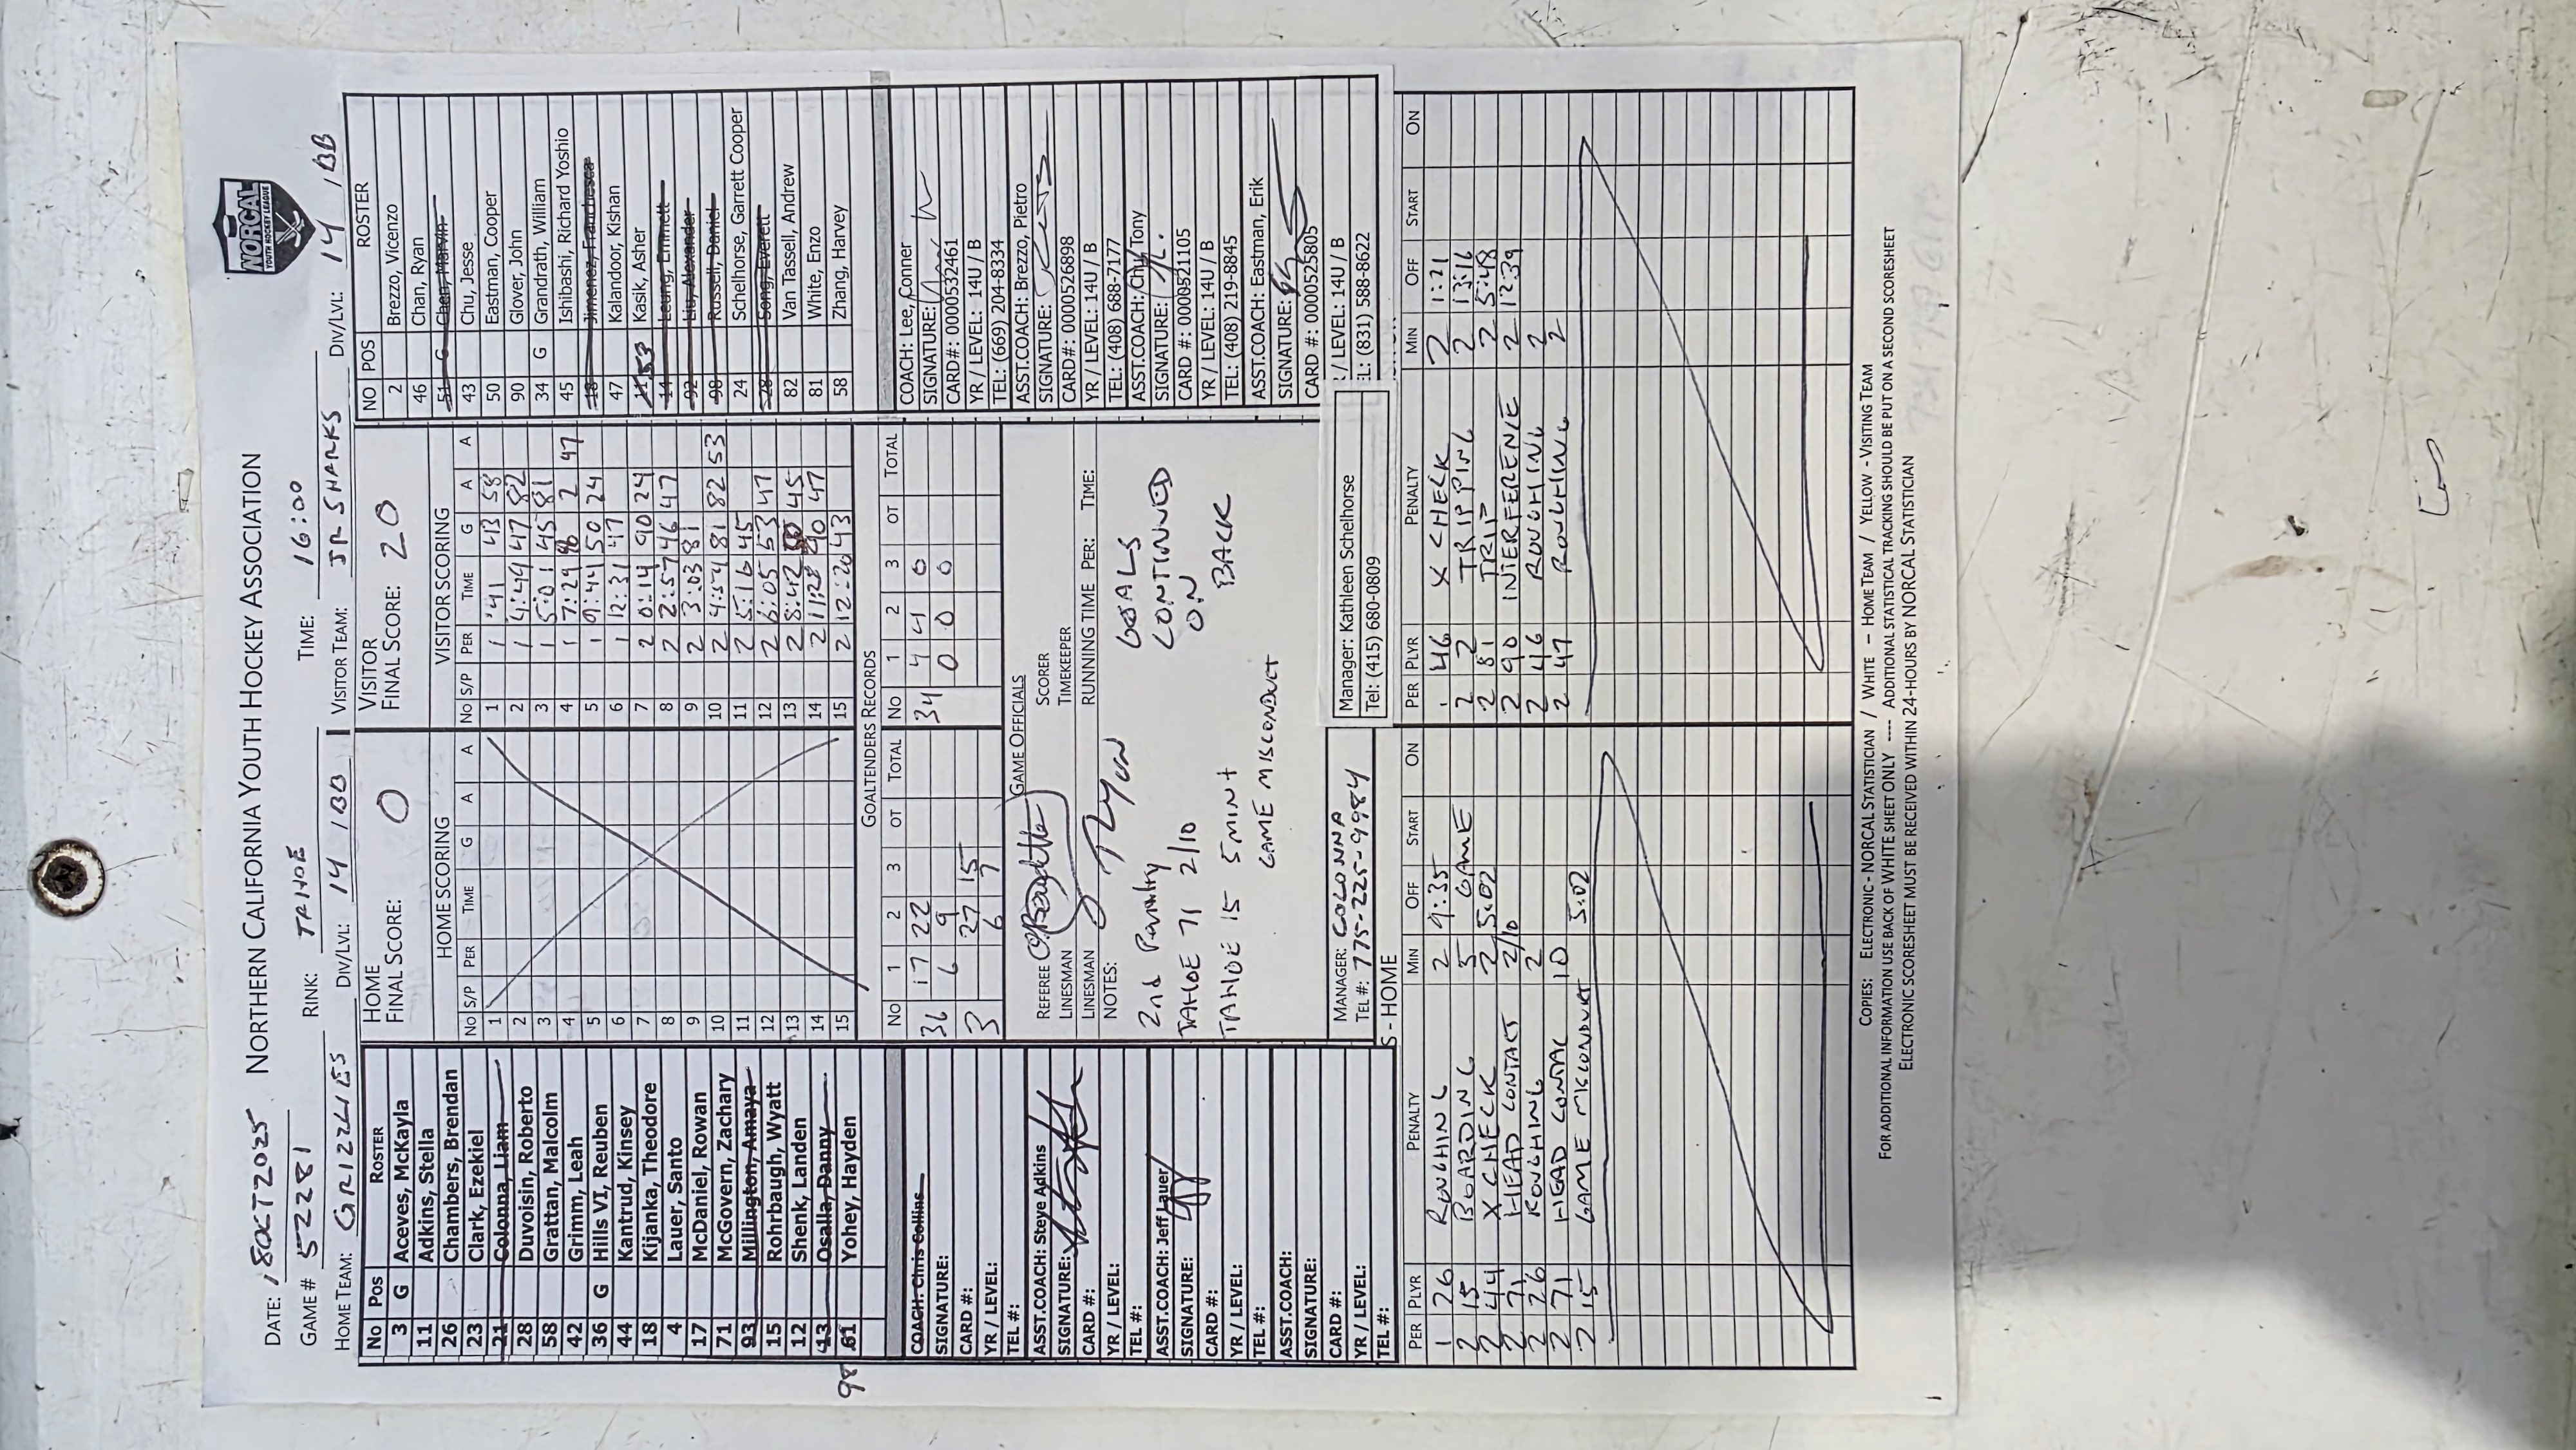 DATE: 18OCT2025 NORTHERN CALIFORNIA YOUTH HOCKEY ASSOCIATION
NORCAL
YOUTH HOCKEY LEAGUE
GAME # 52281 RINK: TAHOE TIME: 16:00
HOME TEAM: GRIZZLIES DIV/LVL: 14 / BB VISITOR TEAM: JR SHARKS DIV/LVL: 14 / BB
No Pos ROSTER
3 G Aceves, McKayla
11 Adkins, Stella
26 Chambers, Brendan
23 Clark, Ezekiel
21 Colonna, Liam
28 Duvoisin, Roberto
58 Grattan, Malcolm
42 Grimm, Leah
36 G Hills VI, Reuben
44 Kantrud, Kinsey
18 Kijanka, Theodore
4 Lauer, Santo
17 McDaniel, Rowan
71 McGovern, Zachary
93 Millington, Amaya
15 Rohrbaugh, Wyatt
12 Shenk, Landen
13 Osalla, Danny
98 61 Yohey, Hayden
HOME
FINAL SCORE: 0
HOME SCORING
No S/P PER TIME G A A
1
2
3
4
5
6
7
8
9
10
11
12
13
14
15
VISITOR
FINAL SCORE: 20
VISITOR SCORING
No S/P PER TIME G A A
1 1 :41 43 58
2 1 4:49 47 82
3 1 5:01 45 81
4 1 7:29 2 47
5 1 9:41 50 24
6 1 12:31 47
7 2 0:14 90 24
8 2 2:57 46 47
9 2 3:03 81
10 2 4:54 81 82 53
11 2 5:16 45
12 2 6:05 53 47
13 2 8:42 45
14 2 11:28 90 47
15 2 12:20 43
NO POS ROSTER
2 Brezzo, Vicenzo
46 Chan, Ryan
51 G Chen, Marvin
43 Chu, Jesse
50 Eastman, Cooper
90 Glover, John
34 G Grandrath, William
45 Ishibashi, Richard Yoshio
18 Jimenez, Franchesca
47 Kalandoor, Kishan
53 Kasik, Asher
14 Leung, Emmett
92 Liu, Alexander
98 Russell, Daniel
24 Schelhorse, Garrett Cooper
28 Song, Everett
82 Van Tassell, Andrew
81 White, Enzo
58 Zhang, Harvey
GOALTENDERS RECORDS
No 1 2 3 OT TOTAL
36 17 22
6 9
3 27 15
6 7
No 1 2 3 OT TOTAL
34 4 4 0
0 0 0
COACH: Chris Collins
SIGNATURE:
CARD #:
YR / LEVEL:
TEL #:
ASST.COACH: Steve Adkins
SIGNATURE:
CARD #:
YR / LEVEL:
TEL #:
ASST.COACH: Jeff Lauer
SIGNATURE:
CARD #:
YR / LEVEL:
TEL #:
ASST.COACH:
SIGNATURE:
CARD #:
YR / LEVEL:
TEL #:
GAME OFFICIALS
REFEREE SCORER
LINESMAN TIMEKEEPER
LINESMAN RUNNING TIME PER: TIME:
NOTES:
2nd Penalty
TAHOE 71 2/10
TAHOE 15 5 MIN +
GAME MISCONDUCT
GOALS
CONTINUED
ON
BACK
MANAGER: COLONNA
TEL #: 775-225-9984
Manager: Kathleen Schelhorse
Tel: (415) 680-0809
COACH: Lee, Conner
SIGNATURE:
CARD#: 0000532461
YR / LEVEL: 14U / B
TEL: (669) 204-8334
ASST.COACH: Brezzo, Pietro
SIGNATURE:
CARD#: 0000526898
YR / LEVEL: 14U / B
TEL: (408) 688-7177
ASST.COACH: Chu, Tony
SIGNATURE:
CARD #: 0000521105
YR / LEVEL: 14U / B
TEL: (408) 219-8845
ASST.COACH: Eastman, Erik
SIGNATURE:
CARD #: 0000525805
/ LEVEL: 14U / B
EL: (831) 588-8622
S - HOME
PER PLYR PENALTY MIN OFF START ON
1 26 ROUGHING 2 9:35
2 15 BOARDING 5 GAME
2 44 X CHECK 2 5:02
2 71 HEAD CONTACT 2/10
2 26 ROUGHING 2
2 71 HEAD CONTAC 10
2 15 GAME MISCONDUCT 5:02
PER PLYR PENALTY MIN OFF START ON
1 46 X CHECK 2 1:21
2 2 TRIPPING 2 13:16
2 81 TRIP 2 5:48
2 90 INTERFERENCE 2 12:39
2 46 ROUGHING 2
2 47 ROUGHING 2
COPIES: ELECTRONIC - NORCAL STATISTICIAN / WHITE – HOME TEAM / YELLOW - VISITING TEAM
FOR ADDITIONAL INFORMATION USE BACK OF WHITE SHEET ONLY ---- ADDITIONAL STATISTICAL TRACKING SHOULD BE PUT ON A SECOND SCORESHEET
ELECTRONIC SCORESHEET MUST BE RECEIVED WITHIN 24-HOURS BY NORCAL STATISTICIAN